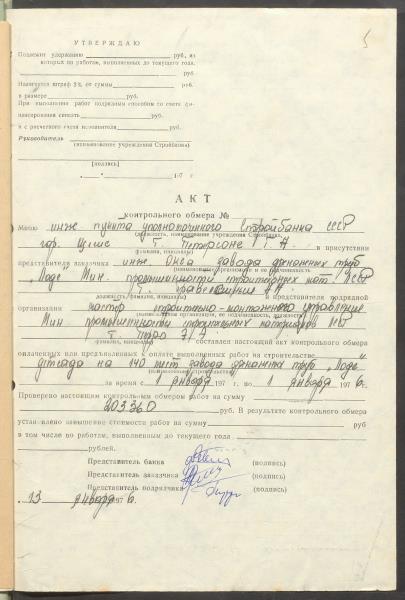 5
УТВЕРЖДАЮ
Подлежит удержанию руб, из
которых по работам, выполненных до текущего года,
руб.
Налагается штраф 3% от суммы руб.
в размере руб.
При выполнении работ подрядным способом со счета фи-
нансирования списать
и с расчетного счета исполнителя
Руководитель
(наименование учреждения Стройбанка)
(подпись)
" " 197 г
АКТ
контрольного обмера №
Мною инж. пункта уполномоченного Стройбанка СССР
(должность, наименование учреждения Стройбанка,
гор. Цесис т. Петерсоне Г. А. в присутствии
фамилия, инициалы)
представителя заказчика инж. ОКСа завода дренажных труб
(наименование организации и ее подчиненность
"Лоде" Мин. промышленности строительных мат.
т.
должность, фамилия, инициалы)
и представителя подрядной
организации мастер строительно-монтажного управления
(наименование организации, ее подчиненность, должность
Мин промышленности строительных материалов
фамилия, инициалы)
составлен настоящий акт контрольного обмера
оплаченных или предъявленных к оплате выполненных работ на строительстве
детсада на 140 мест завода дренажных труб "Лоде"
(наименование строительства)
за время с 1 января 197 г. по 1 января 1976.
Проверено настоящим контрольным обмером работ на сумму
203360 руб. В результате контрольного обмера
установлено завышение стоимости работ на сумму руб
в том числе по работам, выполненным до текущего года
рублей.
Представитель банка (подпись)
Представитель заказчика (подпись)
Представитель подрядчика (подпись)
"13 января 197 6.